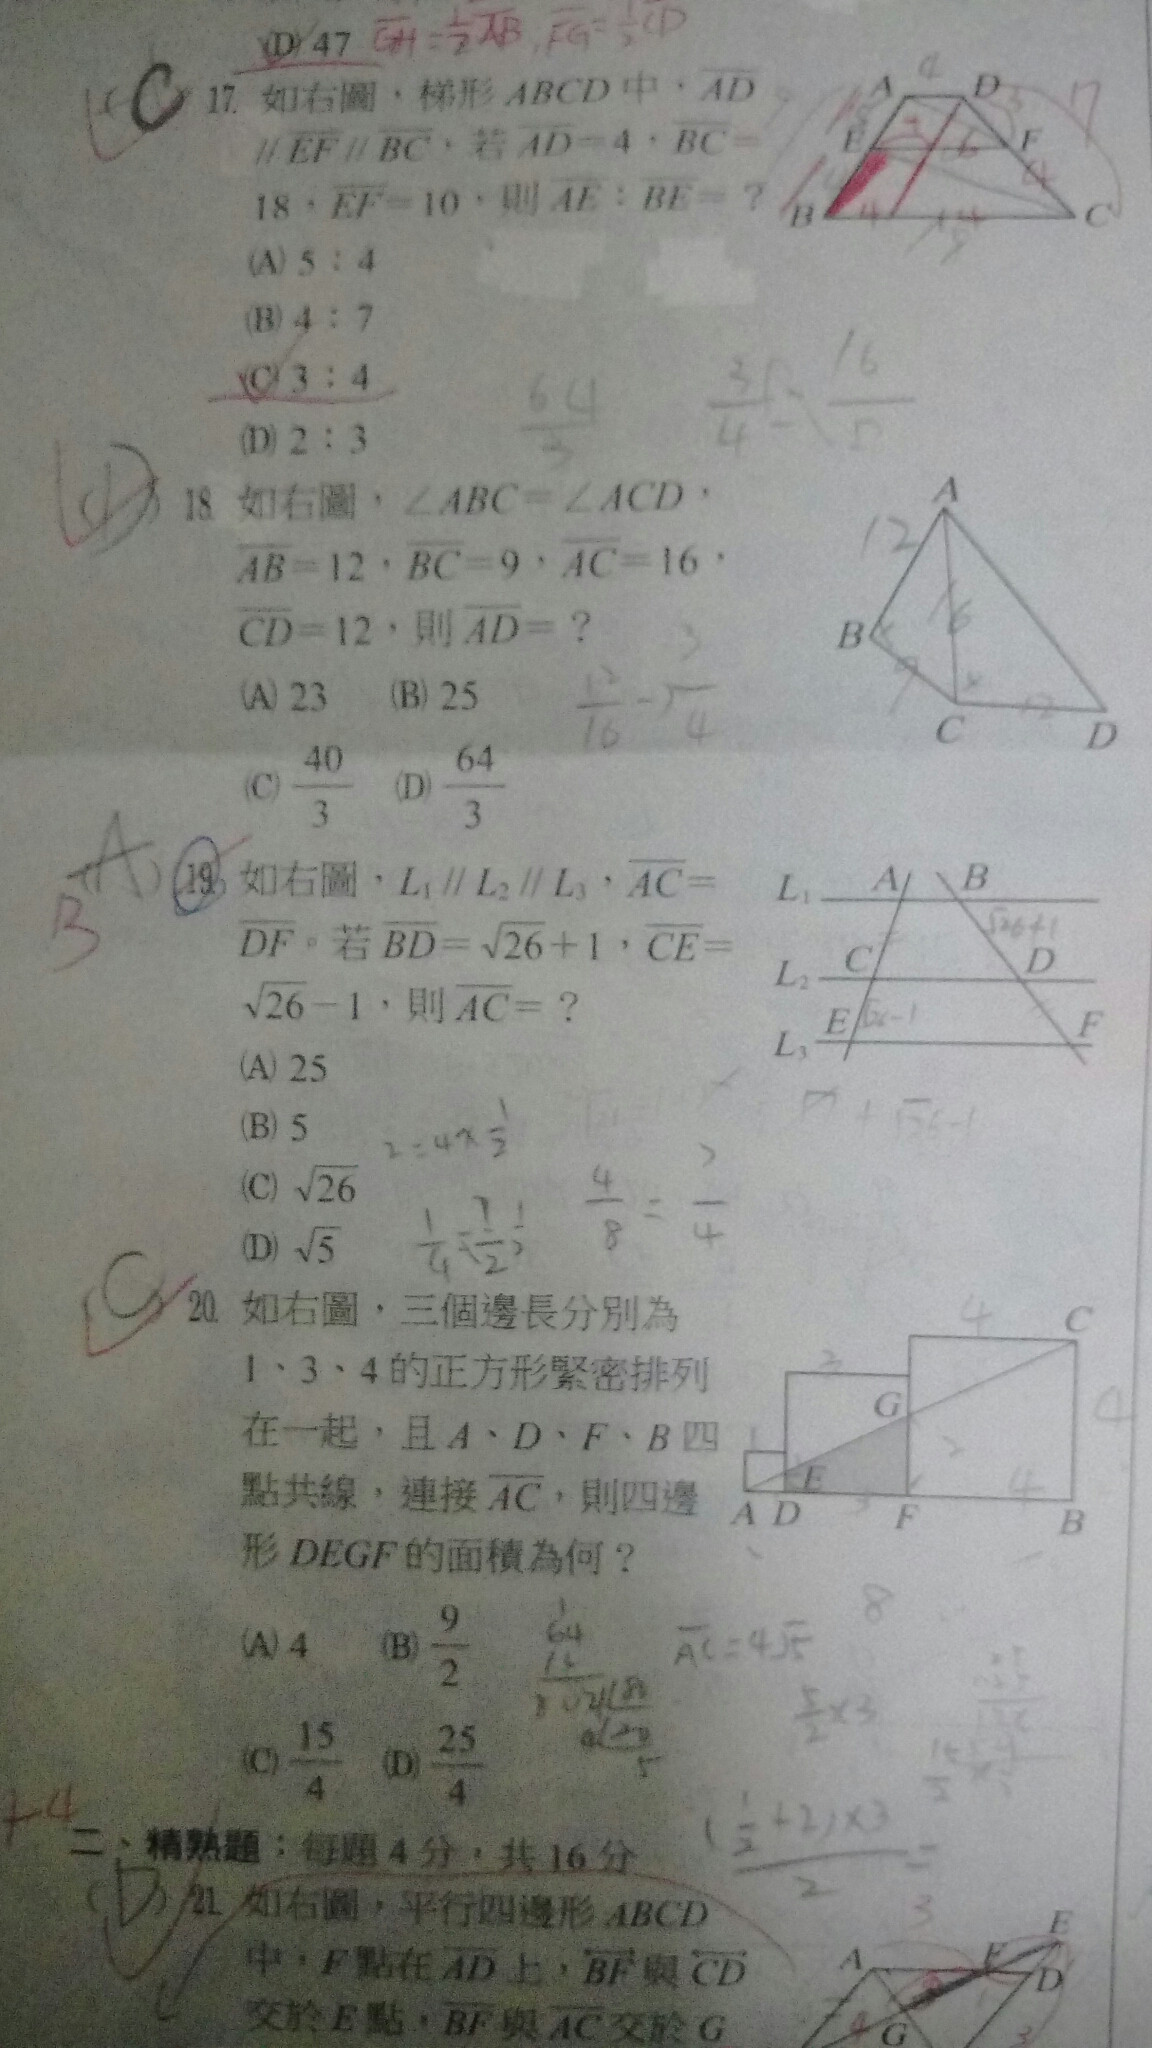 (D) 47 GH=1/2AB, FG=1/2CD
(C) 17. 如右圖，梯形 ABCD 中，AD
// EF // BC，若 AD=4，BC=
18，EF=10，則 AE：BE=？
(A) 5：4
(B) 4：7
(C) 3：4
(D) 2：3
A 4 D
E F
B C
64/3
(D) 18. 如右圖，∠ABC=∠ACD，
AB=12，BC=9，AC=16，
CD=12，則 AD=？
(A) 23 (B) 25
(C) 40/3 (D) 64/3
A
12
16
B
9
C 12 D
(A) 19. 如右圖，L1 // L2 // L3，AC=
B
DF。若 BD=√26+1，CE=
√26−1，則 AC=？
(A) 25
(B) 5
(C) √26
(D) √5
L1 A B
√26+1
L2 C D
L3 E √26-1 F
2=4×1/2
4/8=
(C) 20. 如右圖，三個邊長分別為
1、3、4 的正方形緊密排列
在一起，且 A、D、F、B 四
點共線，連接 AC，則四邊
形 DEGF 的面積為何？
(A) 4 (B) 9/2
(C) 15/4 (D) 25/4
4 C
3
G
4
1 2
E
A D 3 F 4 B
AC=4√5
8
5/2×3
(1/2+2)×3/2=
+4
二、精熟題：每題 4 分，共 16 分
(D) 21. 如右圖，平行四邊形 ABCD
中，F 點在 AD 上，BF 與 CD
交於 E 點，BF 與 AC 交於 G
E
A F D
G
3